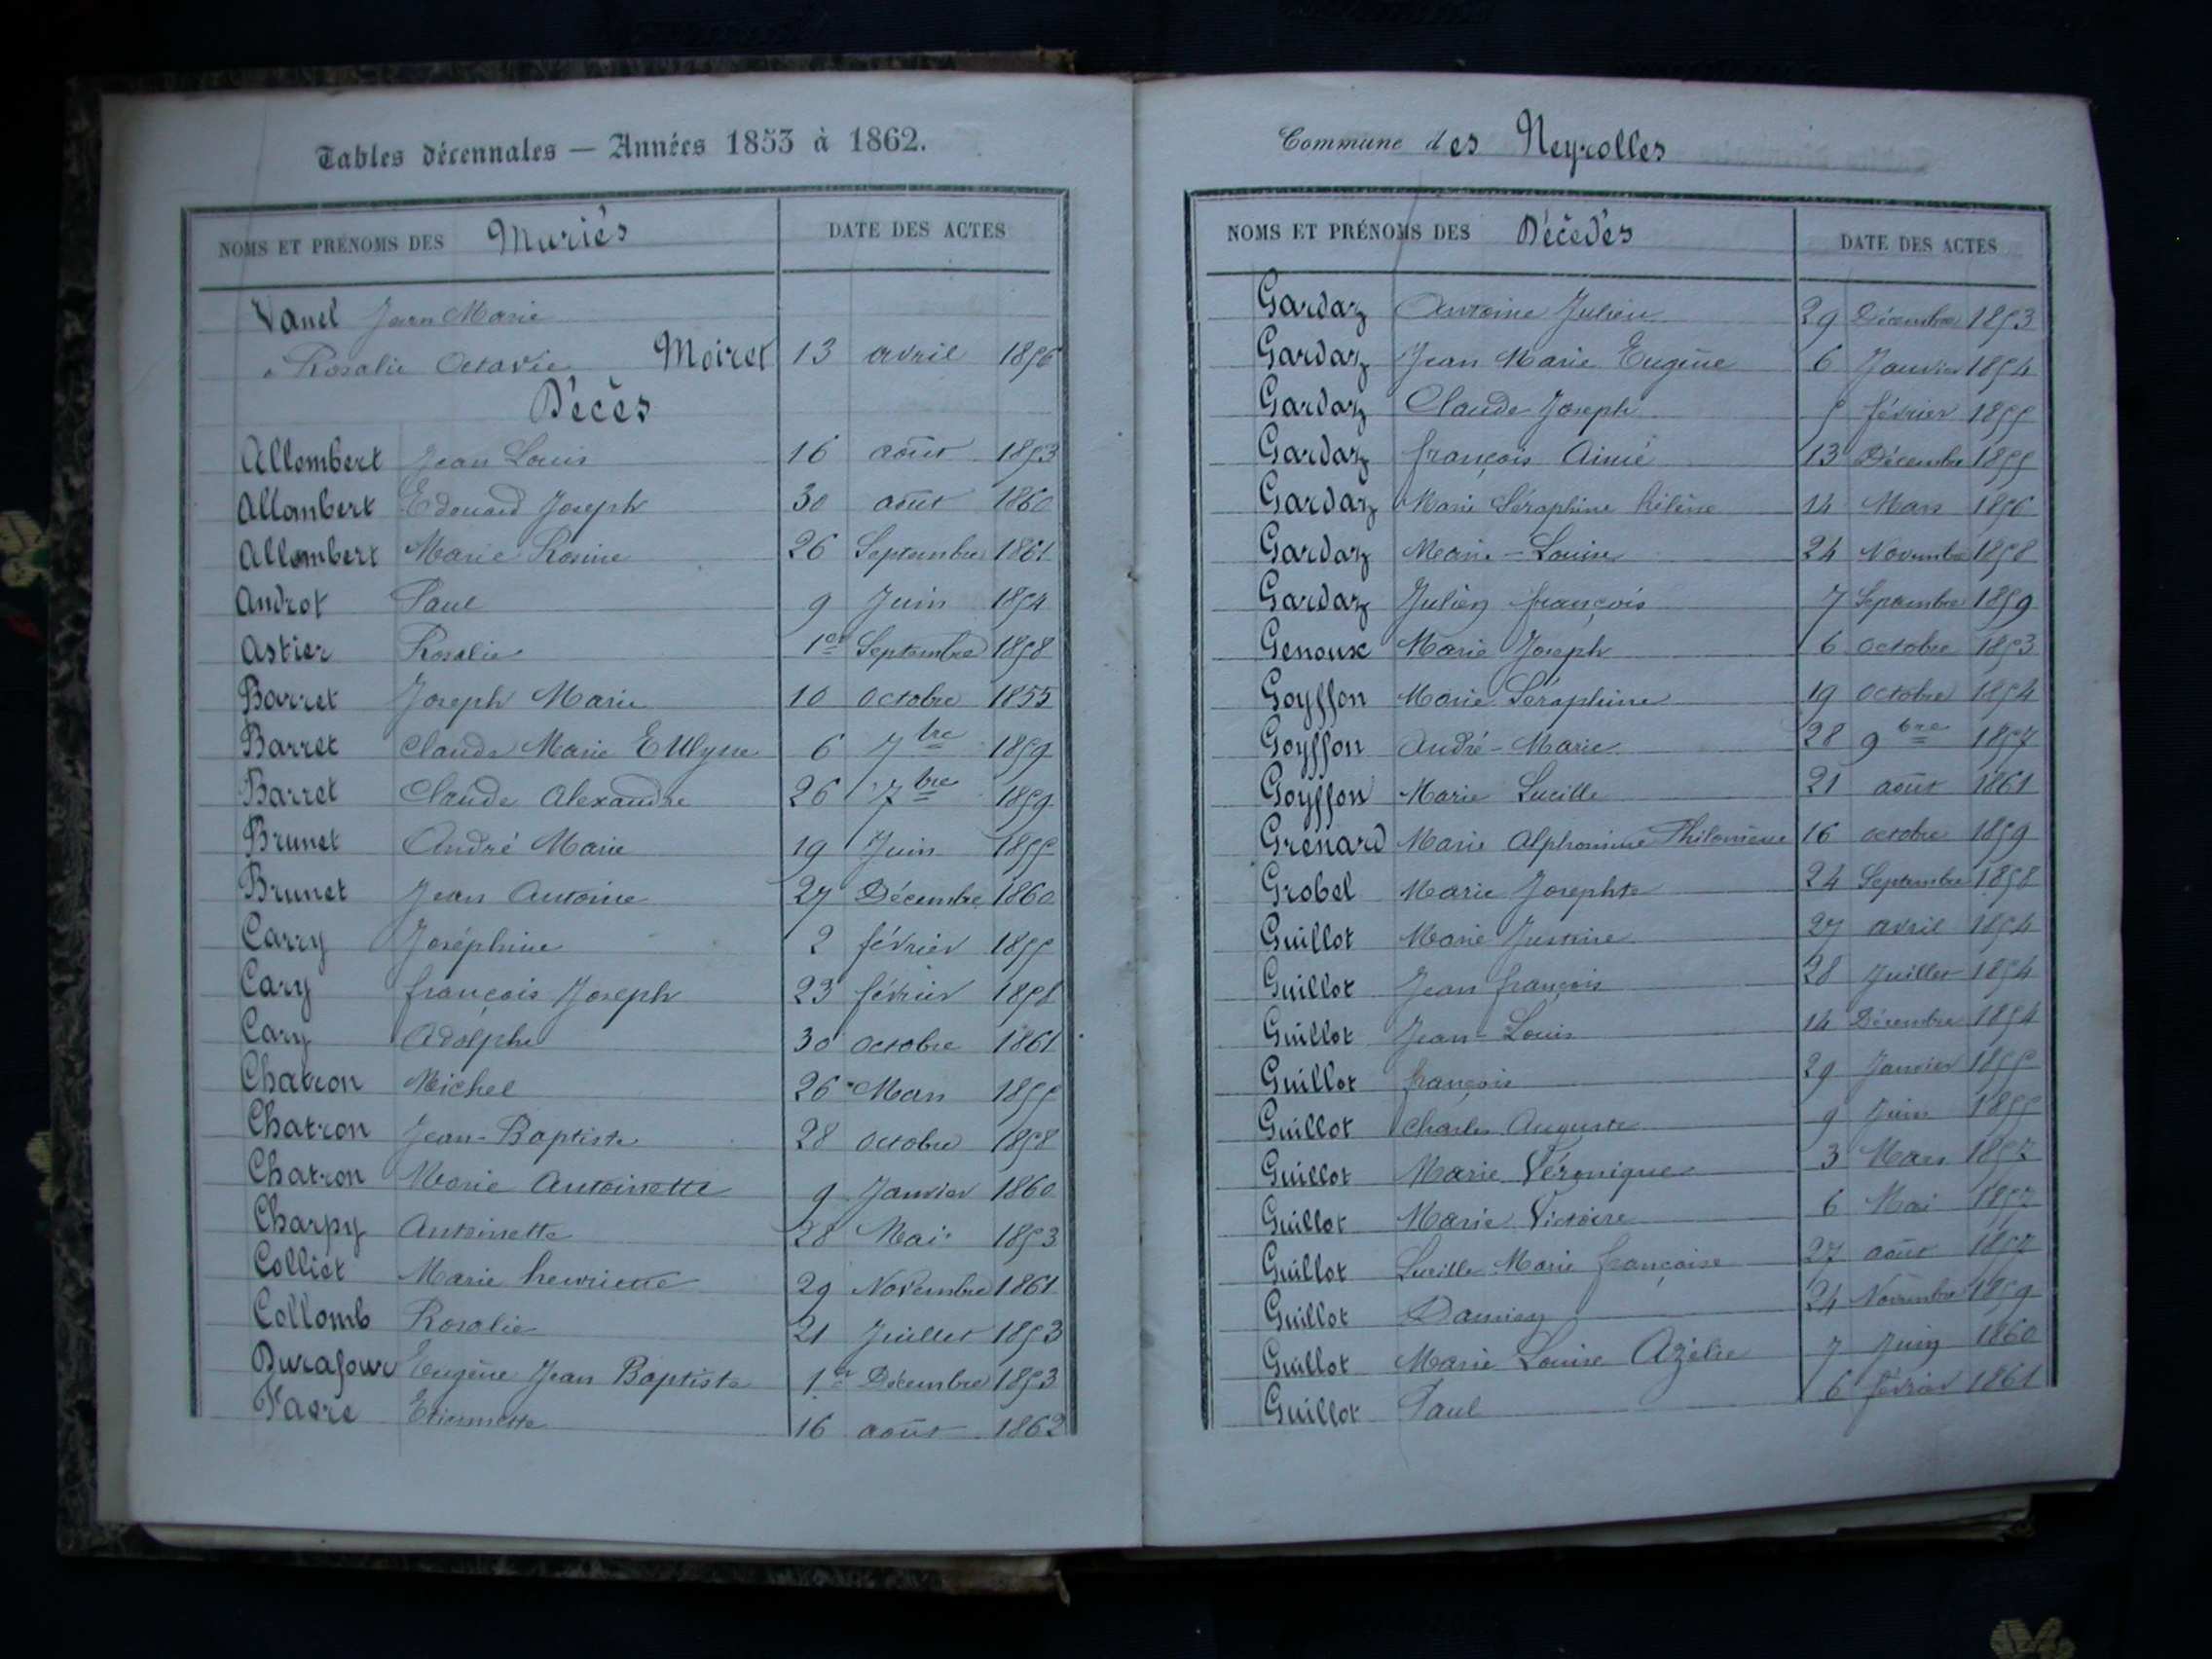 Tables décennales — Années 1853 à 1862.
NOMS ET PRÉNOMS DES Mariés DATE DES ACTES
Vanel Jean Marie
& Rosalie Octavie Moiret 13 avril 1856
Décès
Allombert Jean Louis 16 août 1853
Allombert Edouard Joseph 30 août 1860
Allombert Marie Rosine 26 Septembre 1861
Androt Paul 9 Juin 1854
Astier Rosalie 1er Septembre 1858
Barret Joseph Marie 10 Octobre 1855
Barret Claude Marie E Ulysse 6 7bre 1859
Barret Claude Alexandre 26 7bre 1859
Brunet André Marie 19 Juin 1855
Brunet Jean Antoine 27 Décembre 1860
Carry Joséphine 2 février 1855
Cary françois Joseph 23 février 1858
Cary Adolphe 30 octobre 1861
Chatron Michel 26 Mars 1855
Chatron Jean-Baptiste 28 octobre 1858
Chatron Marie Antoinette 9 Janvier 1860
Charpy Antoinette 28 Mai 1853
Colliet Marie henriette 29 Novembre 1861
Collomb Rosalie 21 Juillet 1853
Durafour Eugène Jean Baptiste 1er Décembre 1853
Favre Etiennette 16 août 1862
Commune des Neyrolles
NOMS ET PRÉNOMS DES Décédés DATE DES ACTES
Gardaz Antoine Julien 29 Décembre 1853
Gardaz Jean Marie Eugène 6 Janvier 1854
Gardaz Claude Joseph 5 février 1855
Gardaz françois Aimé 13 Décembre 1855
Gardaz Marie Séraphine hélène 14 Mars 1856
Gardaz Marie-Louise 24 Novembre 1858
Gardaz Julien françois 7 Septembre 1859
Genoux Marie Joseph 6 octobre 1853
Goyffon Marie Séraphine 19 octobre 1854
Goyffon André-Marie 28 9bre 1857
Goyffon Marie Lucille 21 août 1861
Grenard Marie Alphonsine Philomène 16 octobre 1859
Grobel Marie Josephte 24 Septembre 1858
Guillot Marie Justine 27 avril 1854
Guillot Jean françois 28 Juillet 1854
Guillot Jean-Louis 14 Décembre 1854
Guillot françois 29 Janvier 1855
Guillot Charles Auguste 9 Juin 1855
Guillot Marie Véronique 3 Mars 1857
Guillot Marie Victoire 6 Mai 1857
Guillot Lucille Marie françoise 27 août 1857
Guillot Damien 24 Novembre 1859
Guillot Marie Louise Azélie 7 Juin 1860
Guillot Paul 6 février 1861